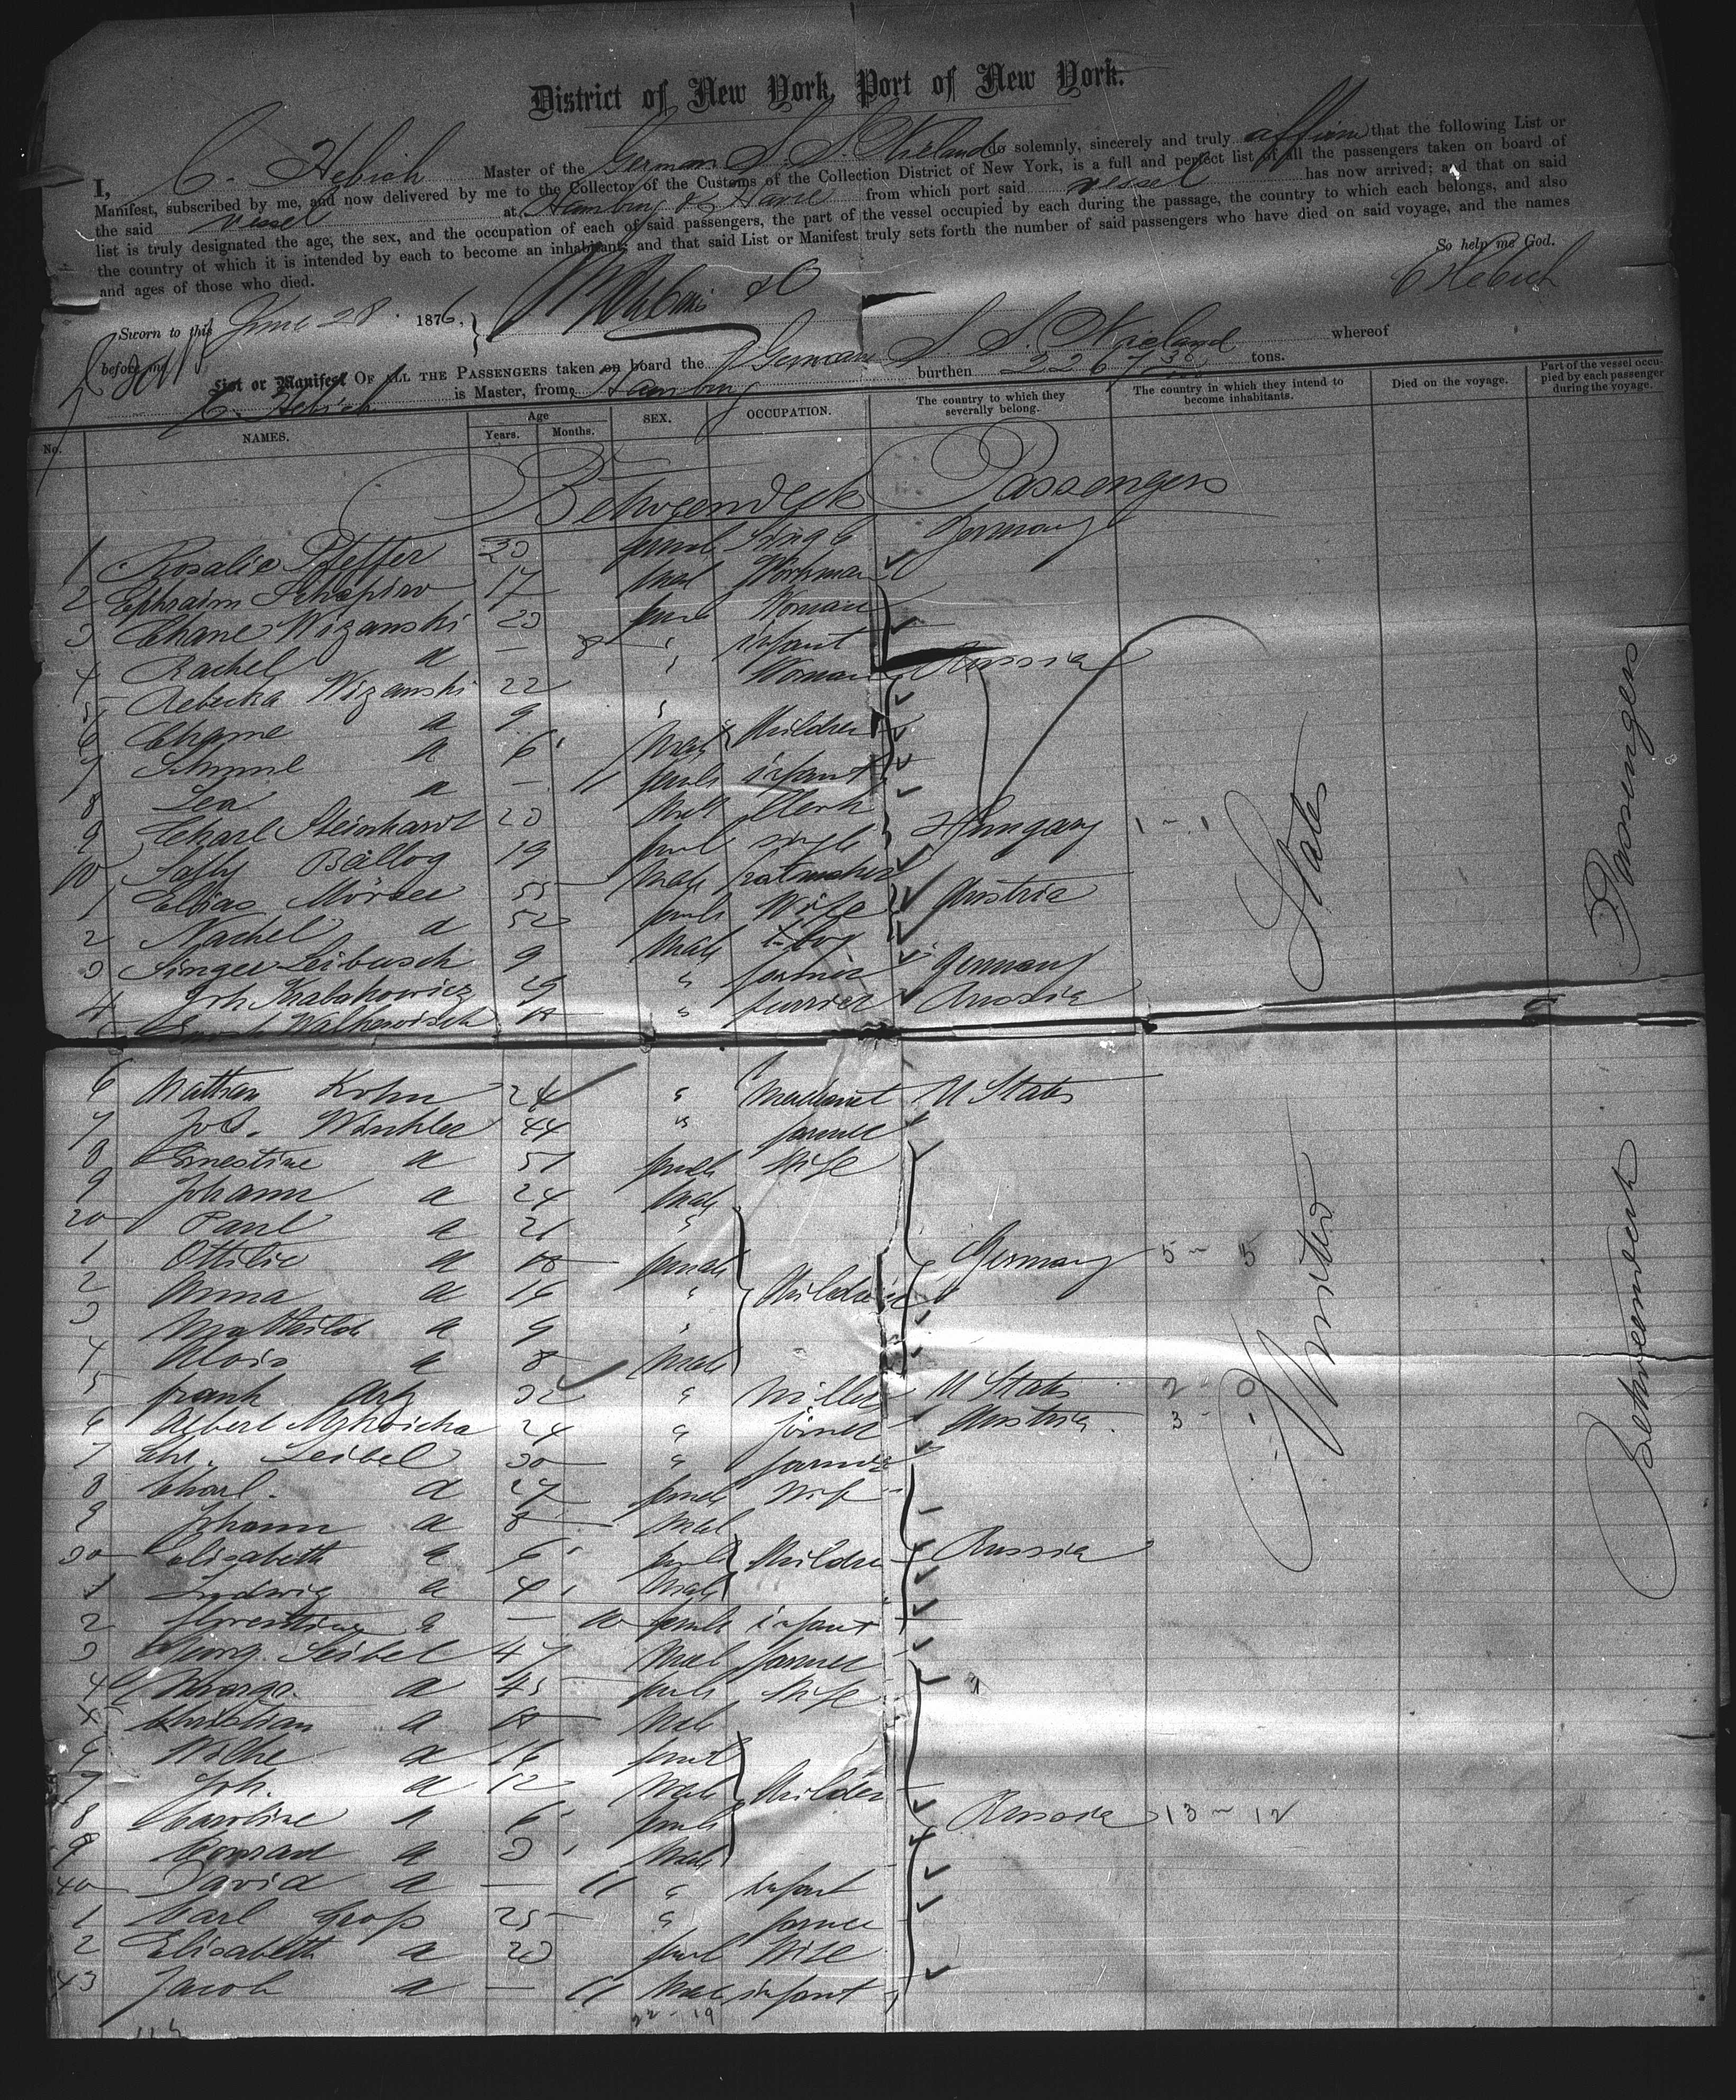 District of New York, Port of New York.
I, C. Hebich Master of the German S. S. Wieland do solemnly, sincerely and truly affirm that the following List or
Manifest, subscribed by me, and now delivered by me to the Collector of the Customs of the Collection District of New York, is a full and perfect list of all the passengers taken on board of
the said vessel at Hamburg & Havre from which port said vessel has now arrived; and that on said
list is truly designated the age, the sex, and the occupation of each of said passengers, the part of the vessel occupied by each during the passage, the country to which each belongs, and also
the country of which it is intended by each to become an inhabitant; and that said List or Manifest truly sets forth the number of said passengers who have died on said voyage, and the names
and ages of those who died.
So help me God.
C Hebich
Sworn to this June 28 1876.
before me
List or Manifest OF ALL THE PASSENGERS taken on board the German S. S. Wieland whereof
C. Hebich is Master, from Hamburg burthen 2267 tons.
No. NAMES. Age Years. Months. SEX. OCCUPATION. The country to which they severally belong. The country in which they intend to become inhabitants. Died on the voyage. Part of the vessel occupied by each passenger during the voyage.
Betweendeck Passengers
1 Rosalie Pfeffer 20 female Single Germany
2 Ephraim Schapiro 17 male Workman
3 Chane Wizanski 20 female Woman
4 Rachel a — 8 " infant Russia
5 Rebecka Wizanski 22 " Woman
6 Chame a 9 "
7 Schmul a 6 male Children
8 Lea a — 11 female infant
9 Charl Steinhardt 20 male Clerk
10 Sally Ballog 19 female single Hungary 1 - 1
1 Elias 55 male
2 Rachel a 52 female Wife Austria
3 Singer Leibusch 9 male boy
4 Joh Krabakowicz 29 " farmer Germany
Walkowisch 18 " furrier Russia
6 Nathan Kohn 24 " Merchant U States
7 Jos. Winkler 44 " farmer
8 Ernestine a 51 female Wife
9 Johann a 24 male
20 Paul a 21 "
1 Ottilie a 18 female Germany 5 - 5
2 Anna a 16 " Children
3 Mathilde a 9 "
4 Alois a 8 male
5 Frank 32 " Miller U States 2 - 0
6 Albert 24 " joiner Austria 3 - 1
7 Chr. Seibel 30 " farmer
8 Charl. a 27 female Wife
9 Johann a 8 male
30 Elisabeth a 6 female Children Russia
1 Ludwig a 4 male
2 Florentine a — 10 female infant
3 Georg Seibel 47 male farmer
4 Marga. a 45 female Wife
5 Christian a 18 male
6 Wilhe a 16 female
7 Joh. a 12 male Children
8 Caroline a 6 female Russia 13 - 12
9 Conrad a 3 male
40 David a — 11 " infant
1 Carl Gross 25 " farmer
2 Elisabeth a 20 female Wife
43 Jacob a — 11 male infant
22 - 19
United States
Betweendeck Passengers